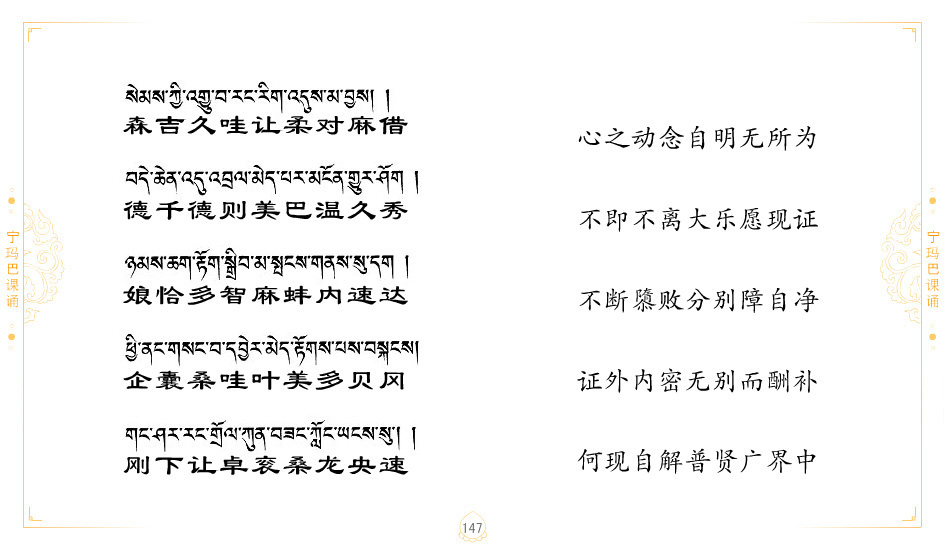 སེམས་ཀྱི་འགྱུ་བ་རང་རིག་འདུས་མ་བྱས། །
森吉久哇让柔对麻借
心之动念自明无所为
བདེ་ཆེན་འདུ་འབྲལ་མེད་པར་མངོན་གྱུར་ཤོག །
德千德则美巴温久秀
不即不离大乐愿现证
ཉམས་ཆག་རྟོག་སྒྲིབ་མ་སྤངས་གནས་སུ་དག །
娘恰多智麻蚌内速达
不断隳败分别障自净
ཕྱི་ནང་གསང་བ་དབྱེར་མེད་རྟོགས་པས་བསྐངས།
企囊桑哇叶美多贝冈
证外内密无别而酬补
གང་ཤར་རང་གྲོལ་ཀུན་བཟང་ཀློང་ཡངས་སུ། །
刚下让卓衮桑龙央速
何现自解普贤广界中
宁玛巴课诵
宁玛巴课诵
147